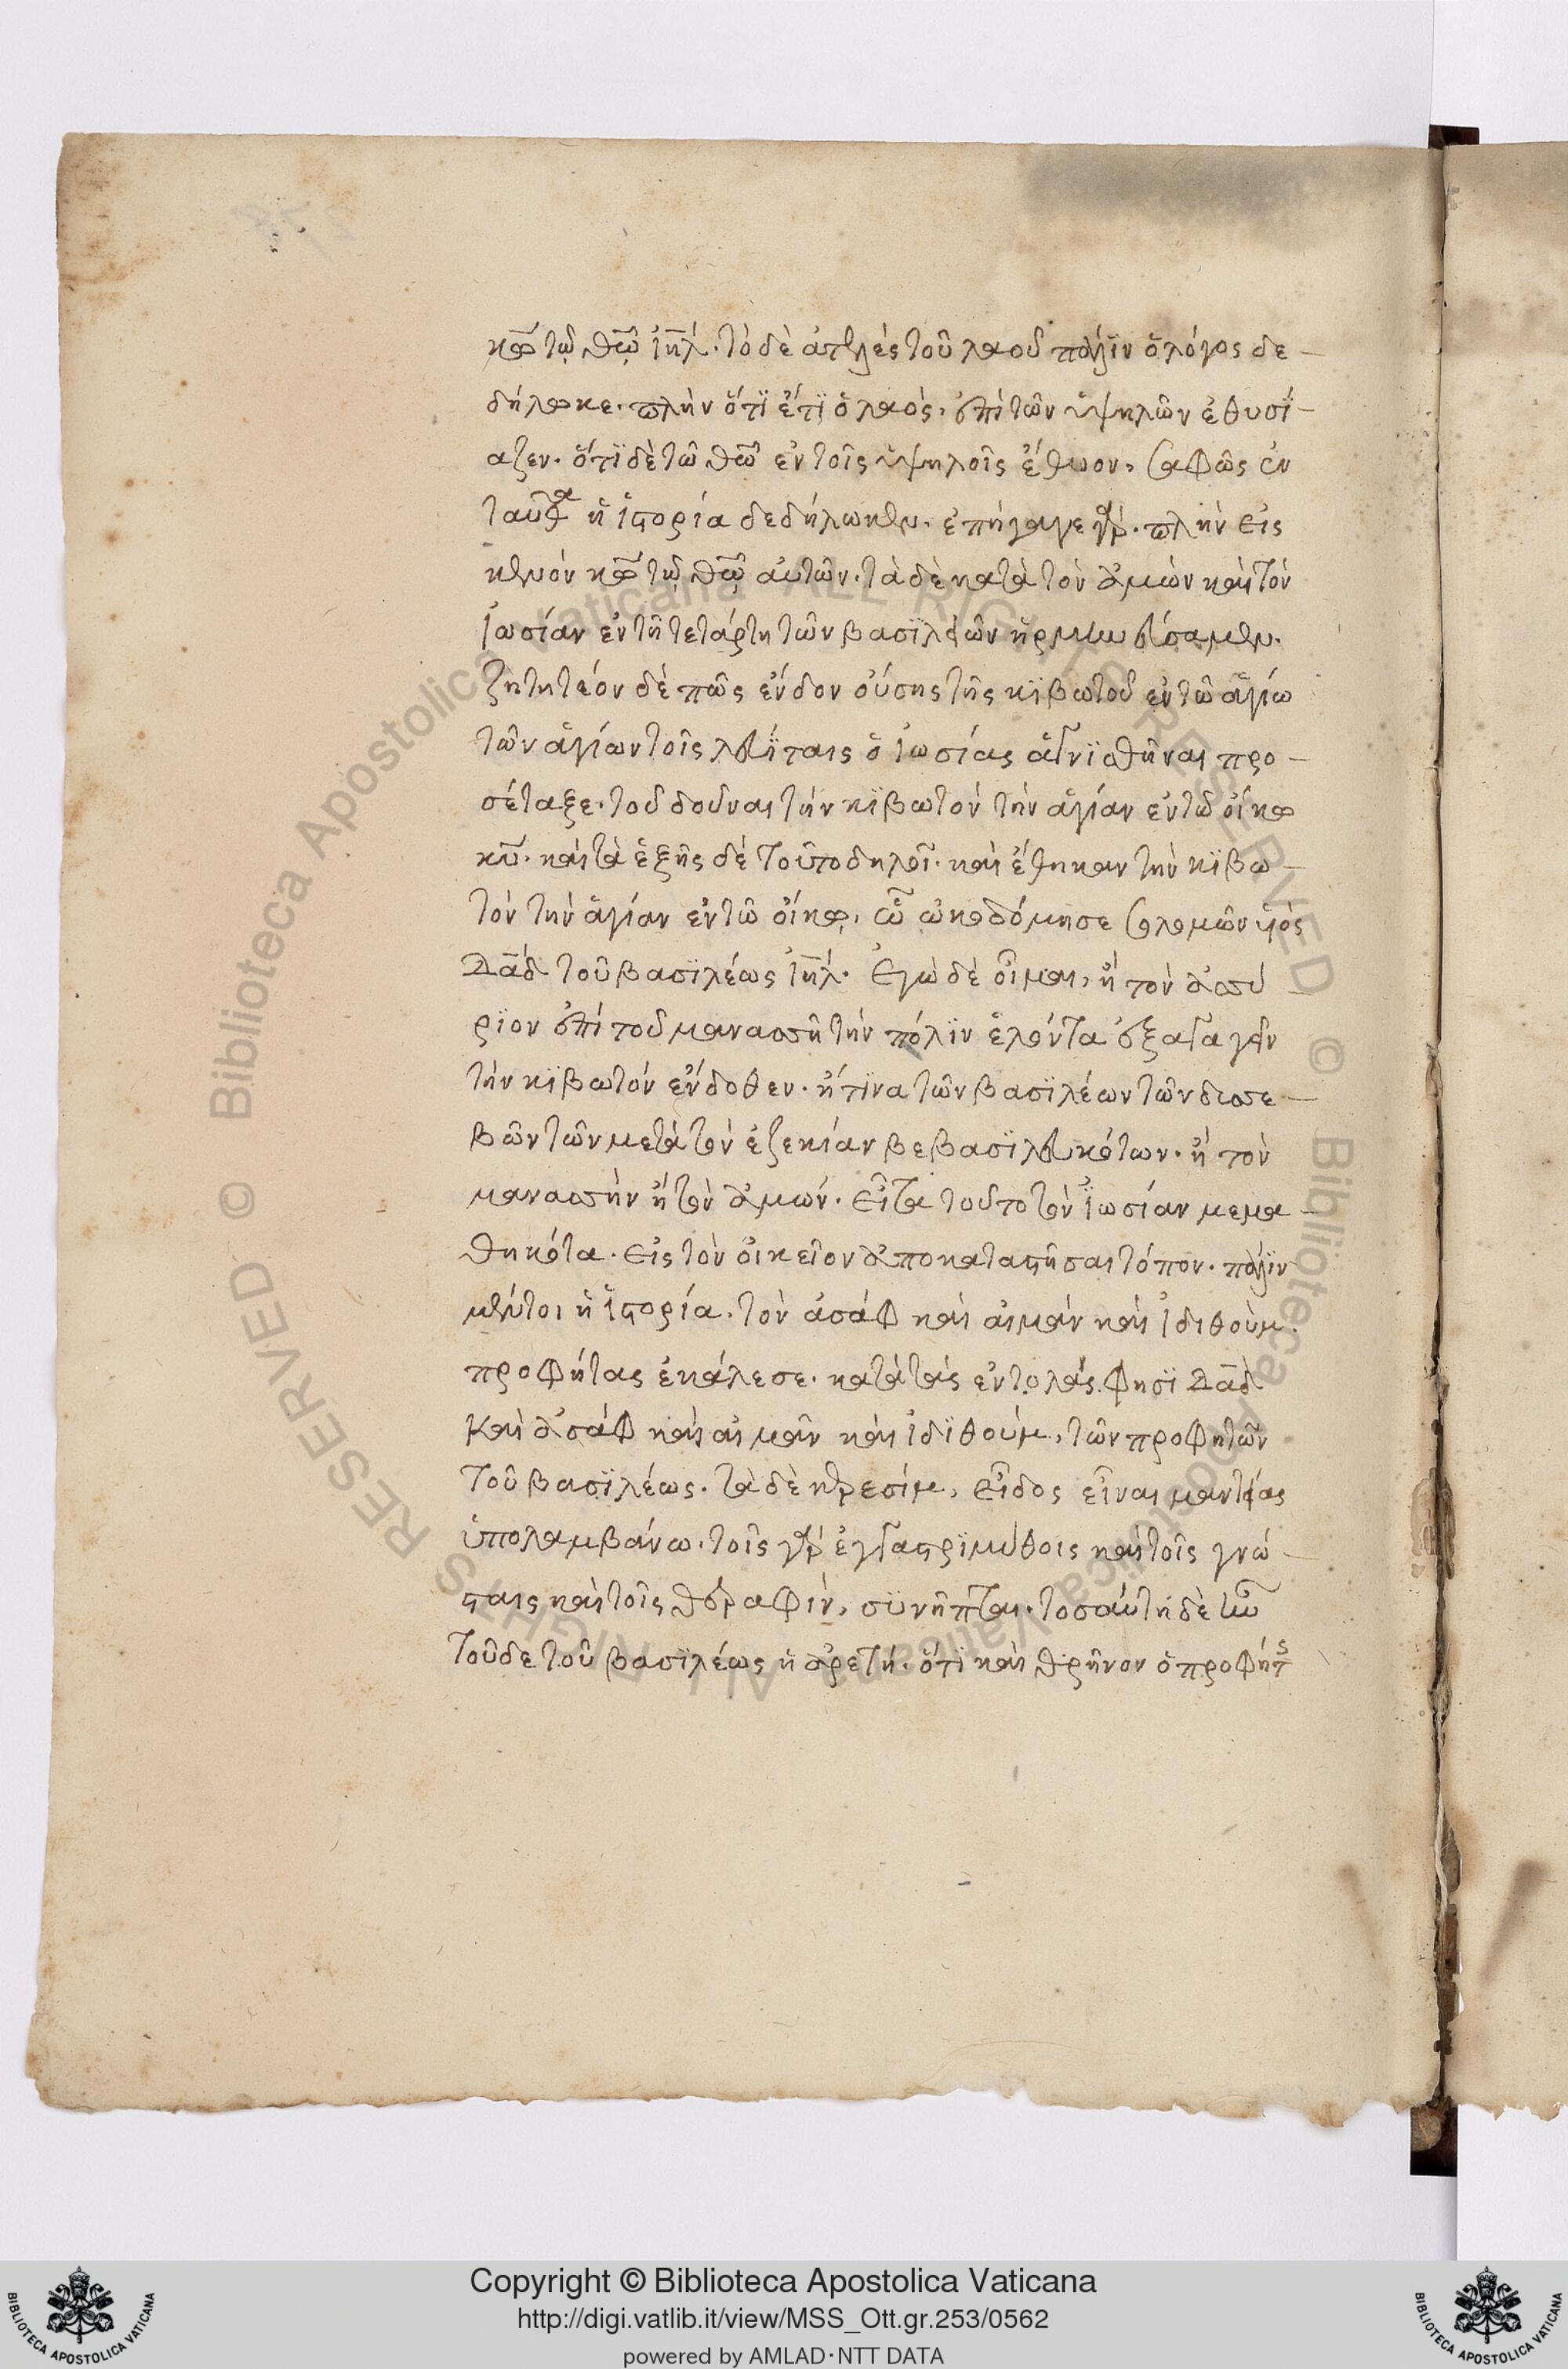 κῶ τῷ θῶ ἰηλ. τὸ δὲ ἀτελὲς τοῦ λαοῦ πάλϊν ὁ λόγος δε-
δήλωκε. πλὴν ὅτϊ ἔτϊ ὁ λαὸς, ἐπὶ τῶν ὑψηλῶν ἐθυσί-
αζεν. ὅτϊ δὲ τῶ θῶ ἐν τοῖς ὑψηλοῖς ἔθυον, σαφῶς ἐν
ταῦθα ἡ ἱστορία δεδήλωκεν. ἐπήγαγε γὰρ. πλὴν εἰς
κενὸν κῶ τῷ θῶ αὐτῶν. τὰ δὲ κατὰ τὸν ἀμὼν καὶ τὸν
ἰωσίαν ἐν τῆ τετάρτη τῶν βασϊλειῶν ἡρμηνεύσαμεν.
ζητητέον δὲ πῶς ἔνδον οὔσης τῆς κϊβωτοῦ ἐν τῶ ἁγίω
τῶν ἁγίων τοῖς λευΐταις ὁ ἰωσίας ἁγνϊσθῆναι προ-
σέταξε. τοῦ δοῦναι τὴν κϊβωτὸν τὴν ἁγίαν ἐν τῶ οἴκω
κυ. καὶ τὰ ἑξῆς δὲ τοῦτο δηλοῖ. καὶ ἔθηκαν τὴν κϊβω-
τὸν τὴν ἁγίαν ἐν τῶ οἴκω, ὧ ὠκοδόμησε σολομῶν υἱὸς
δαδ τοῦ βασϊλέως ἰηλ. ἐγὼ δὲ οἶμαι, ἢ τὸν ἀσσύ-
ριον ἐπὶ τοῦ μανασσῆ τὴν πόλϊν ἑλόντα ἐξαγαγεῖν
τὴν κϊβωτὸν ἔνδοθεν. ἤ τϊνα τῶν βασϊλέων τῶν δυσσε-
βῶν τῶν μετὰ τὸν ἐζεκίαν βεβασϊλευκότων. ἢ τὸν
μανασσὴν ἢ τὸν ἀμών. εἶτα τοῦτο τὸν ἰωσίαν μεμα-
θηκότα. εἰς τὸν οἰκεῖον ἀποκαταστῆσαι τόπον. πάλϊν
μέντοι ἡ ἱστορία. τὸν ἀσὰφ καὶ αἰμὰν καὶ ἰδιθοὺμ.
προφήτας ἐκάλεσε. κατὰ τὰς ἐντολάς φησϊ δαδ
καὶ ἀσὰφ καὶ αἰμὰν καὶ ἰδϊθούμ, τῶν προφητῶν
τοῦ βασϊλέως. τὰ δὲ κερεσίμ, εἶδος εἶναι μαντείας
ὑπολαμβάνω. τοῖς γὰρ ἐγγαστρϊμύθοις καὶ τοῖς γνώ-
σταις καὶ τοῖς θεραφὶν, συνῆπται. τοσαύτη δὲ ἦν
τοῦδε τοῦ βασϊλέως ἡ ἀρετή. ὅτϊ καὶ θρῆνον ὁ προφήτς
Copyright © Biblioteca Apostolica Vaticana
http://digi.vatlib.it/view/MSS_Ott.gr.253/0562
powered by AMLAD·NTT DATA